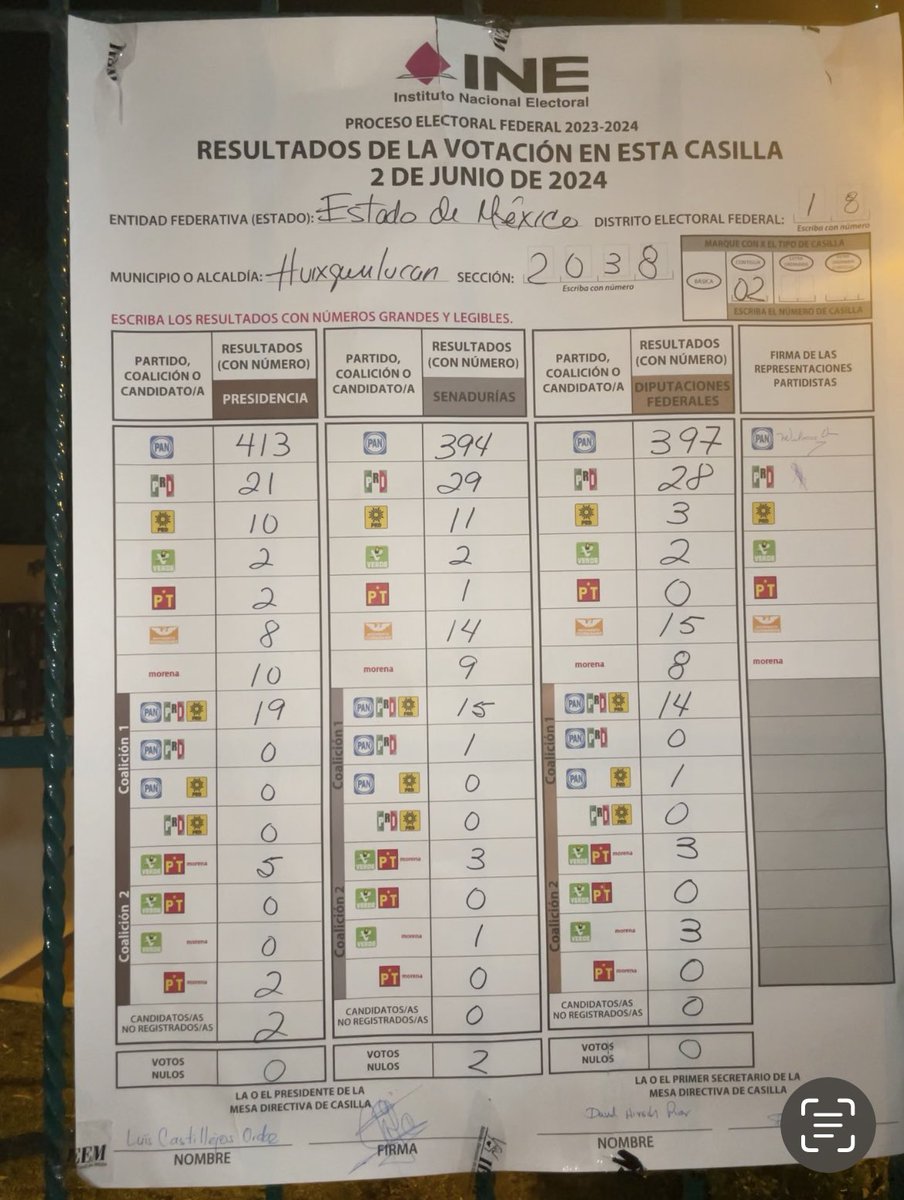 INE
Instituto Nacional Electoral
PROCESO ELECTORAL FEDERAL 2023-2024
RESULTADOS DE LA VOTACIÓN EN ESTA CASILLA
2 DE JUNIO DE 2024
ENTIDAD FEDERATIVA (ESTADO): Estado de México DISTRITO ELECTORAL FEDERAL: 1 8
Escriba con número
MUNICIPIO O ALCALDÍA: Huixquilucan SECCIÓN: 2 0 3 8
Escriba con número
MARQUE CON X EL TIPO DE CASILLA
BÁSICA CONTIGUA 02
ESCRIBA EL NÚMERO DE CASILLA
ESCRIBA LOS RESULTADOS CON NÚMEROS GRANDES Y LEGIBLES.
PARTIDO, COALICIÓN O CANDIDATO/A RESULTADOS (CON NÚMERO) PRESIDENCIA PARTIDO, COALICIÓN O CANDIDATO/A RESULTADOS (CON NÚMERO) SENADURÍAS PARTIDO, COALICIÓN O CANDIDATO/A RESULTADOS (CON NÚMERO) DIPUTACIONES FEDERALES FIRMA DE LAS REPRESENTACIONES PARTIDISTAS
PAN 413 PAN 394 PAN 397 PAN
PRD 21 PRD 29 PRD 28 PRD
PRD 10 PRD 11 PRD 3 PRD
VERDE 2 VERDE 2 VERDE 2 VERDE
PT 2 PT 1 PT 0 PT
8 14 15
morena 10 morena 9 morena 8 morena
Coalición 1 PAN PRD PRD 19 Coalición 1 PAN PRD PRD 15 Coalición 1 PAN PRD PRD 14
PAN PRD 0 PAN PRD 1 PAN PRD 0
PAN PRD 0 PAN PRD 0 PAN PRD 1
PRD PRD 0 PRD PRD 0 PRD PRD 0
Coalición 2 VERDE PT morena 5 Coalición 2 VERDE PT morena 3 Coalición 2 VERDE PT morena 3
VERDE PT 0 VERDE PT 0 VERDE PT 0
VERDE morena 0 VERDE morena 1 VERDE morena 3
PT morena 2 PT morena 0 PT morena 0
CANDIDATOS/AS NO REGISTRADOS/AS 2 CANDIDATOS/AS NO REGISTRADOS/AS 0 CANDIDATOS/AS NO REGISTRADOS/AS 0
VOTOS NULOS 0 VOTOS NULOS 2 VOTOS NULOS 0
LA O EL PRESIDENTE DE LA MESA DIRECTIVA DE CASILLA
LA O EL PRIMER SECRETARIO DE LA MESA DIRECTIVA DE CASILLA
Luis Castillejos
David
NOMBRE FIRMA NOMBRE
IEEM